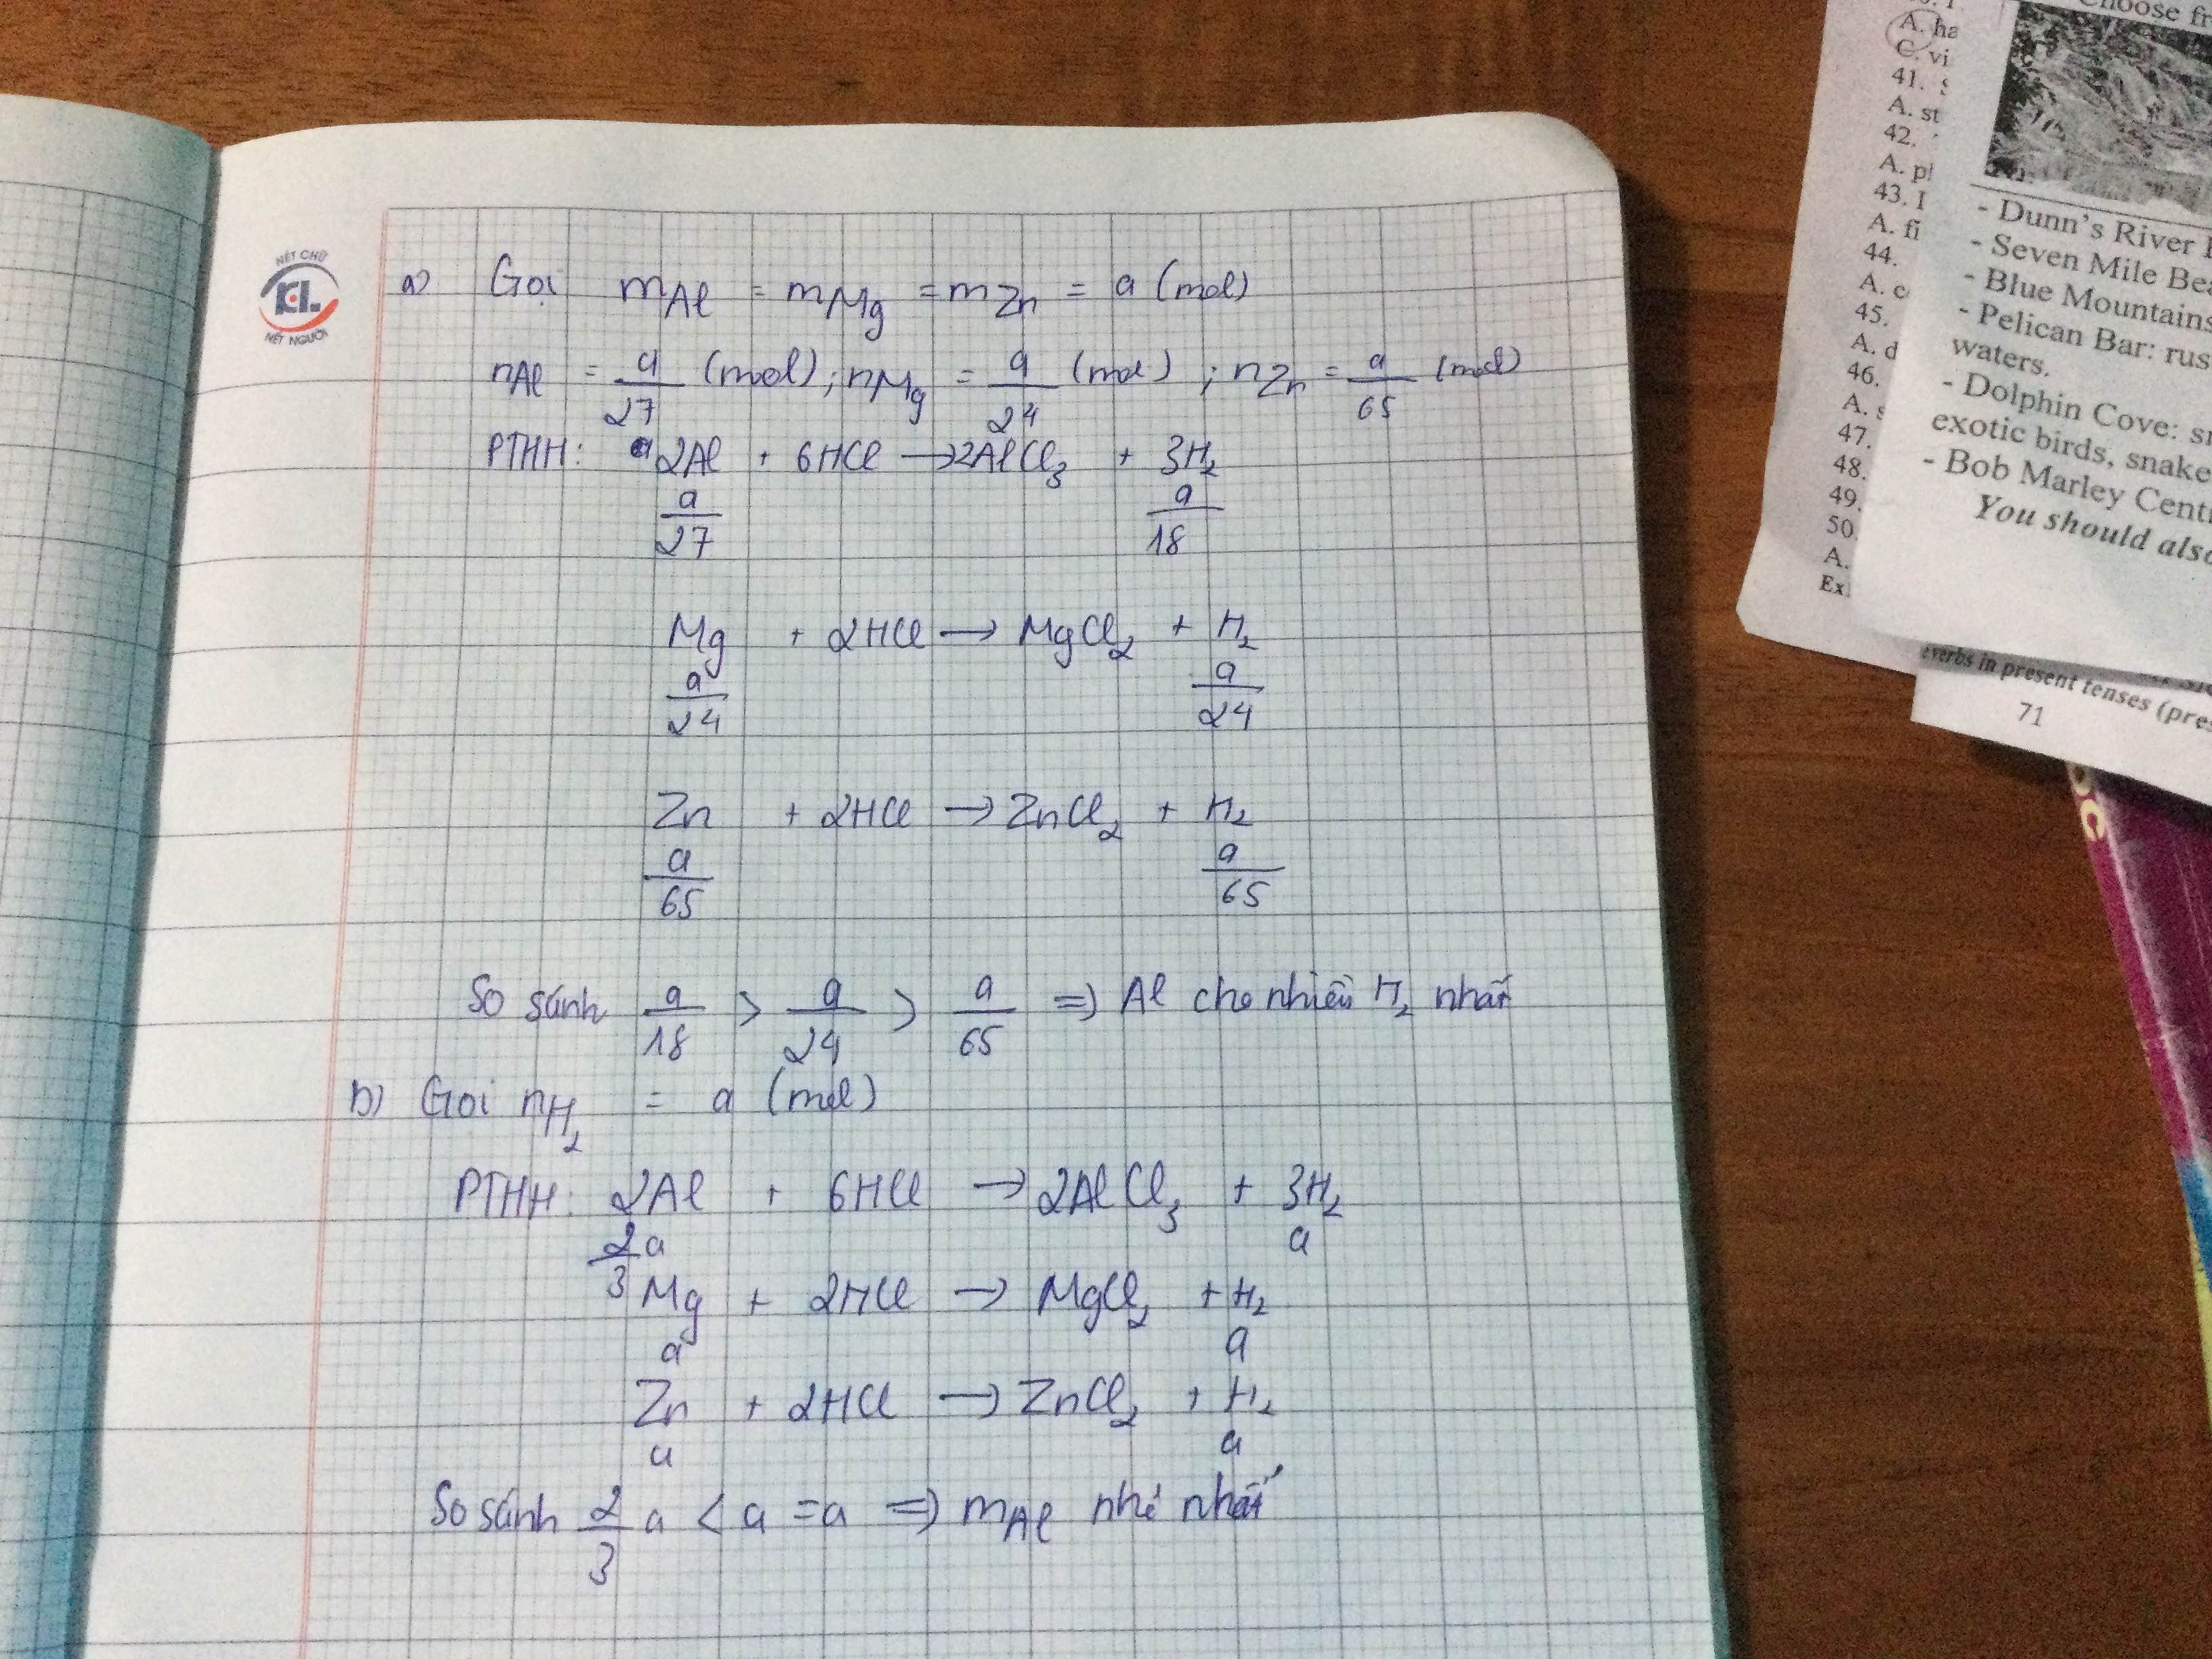 NÉT CHỮ
KL
NẾT NGƯỜI
a) Gọi mAl = mMg = mZn = a (mol)
nAl = a/27 (mol); nMg = a/24 (mol); nZn = a/65 (mol)
PTHH: 2Al + 6HCl → 2AlCl₃ + 3H₂
a/27 a/18
Mg + 2HCl → MgCl₂ + H₂
a/24 a/24
Zn + 2HCl → ZnCl₂ + H₂
a/65 a/65
So sánh a/18 > a/24 > a/65 => Al cho nhiều H₂ nhất
b) Gọi nH₂ = a (mol)
PTHH: 2Al + 6HCl → 2AlCl₃ + 3H₂
2/3 a a
Mg + 2HCl → MgCl₂ + H₂
a a
Zn + 2HCl → ZnCl₂ + H₂
a a
So sánh 2/3 a < a = a => mAl nhỏ nhất
A. ha
C. vi
41. S
A. st
42.
A. pl
43. I
A. fi
44.
A. c
45.
A. d
46.
A. s
47.
48.
49.
50.
A.
Ex
- Dunn's River
- Seven Mile Bea
- Blue Mountains
- Pelican Bar: rus
waters.
- Dolphin Cove:
exotic birds, snake
- Bob Marley Cent
You should also
verbs in present tenses (pres
71